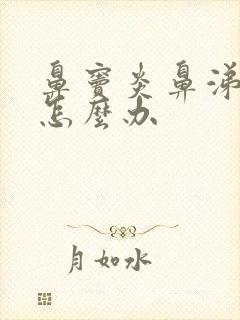 鼻窦炎鼻涕
怎麼办
月如水